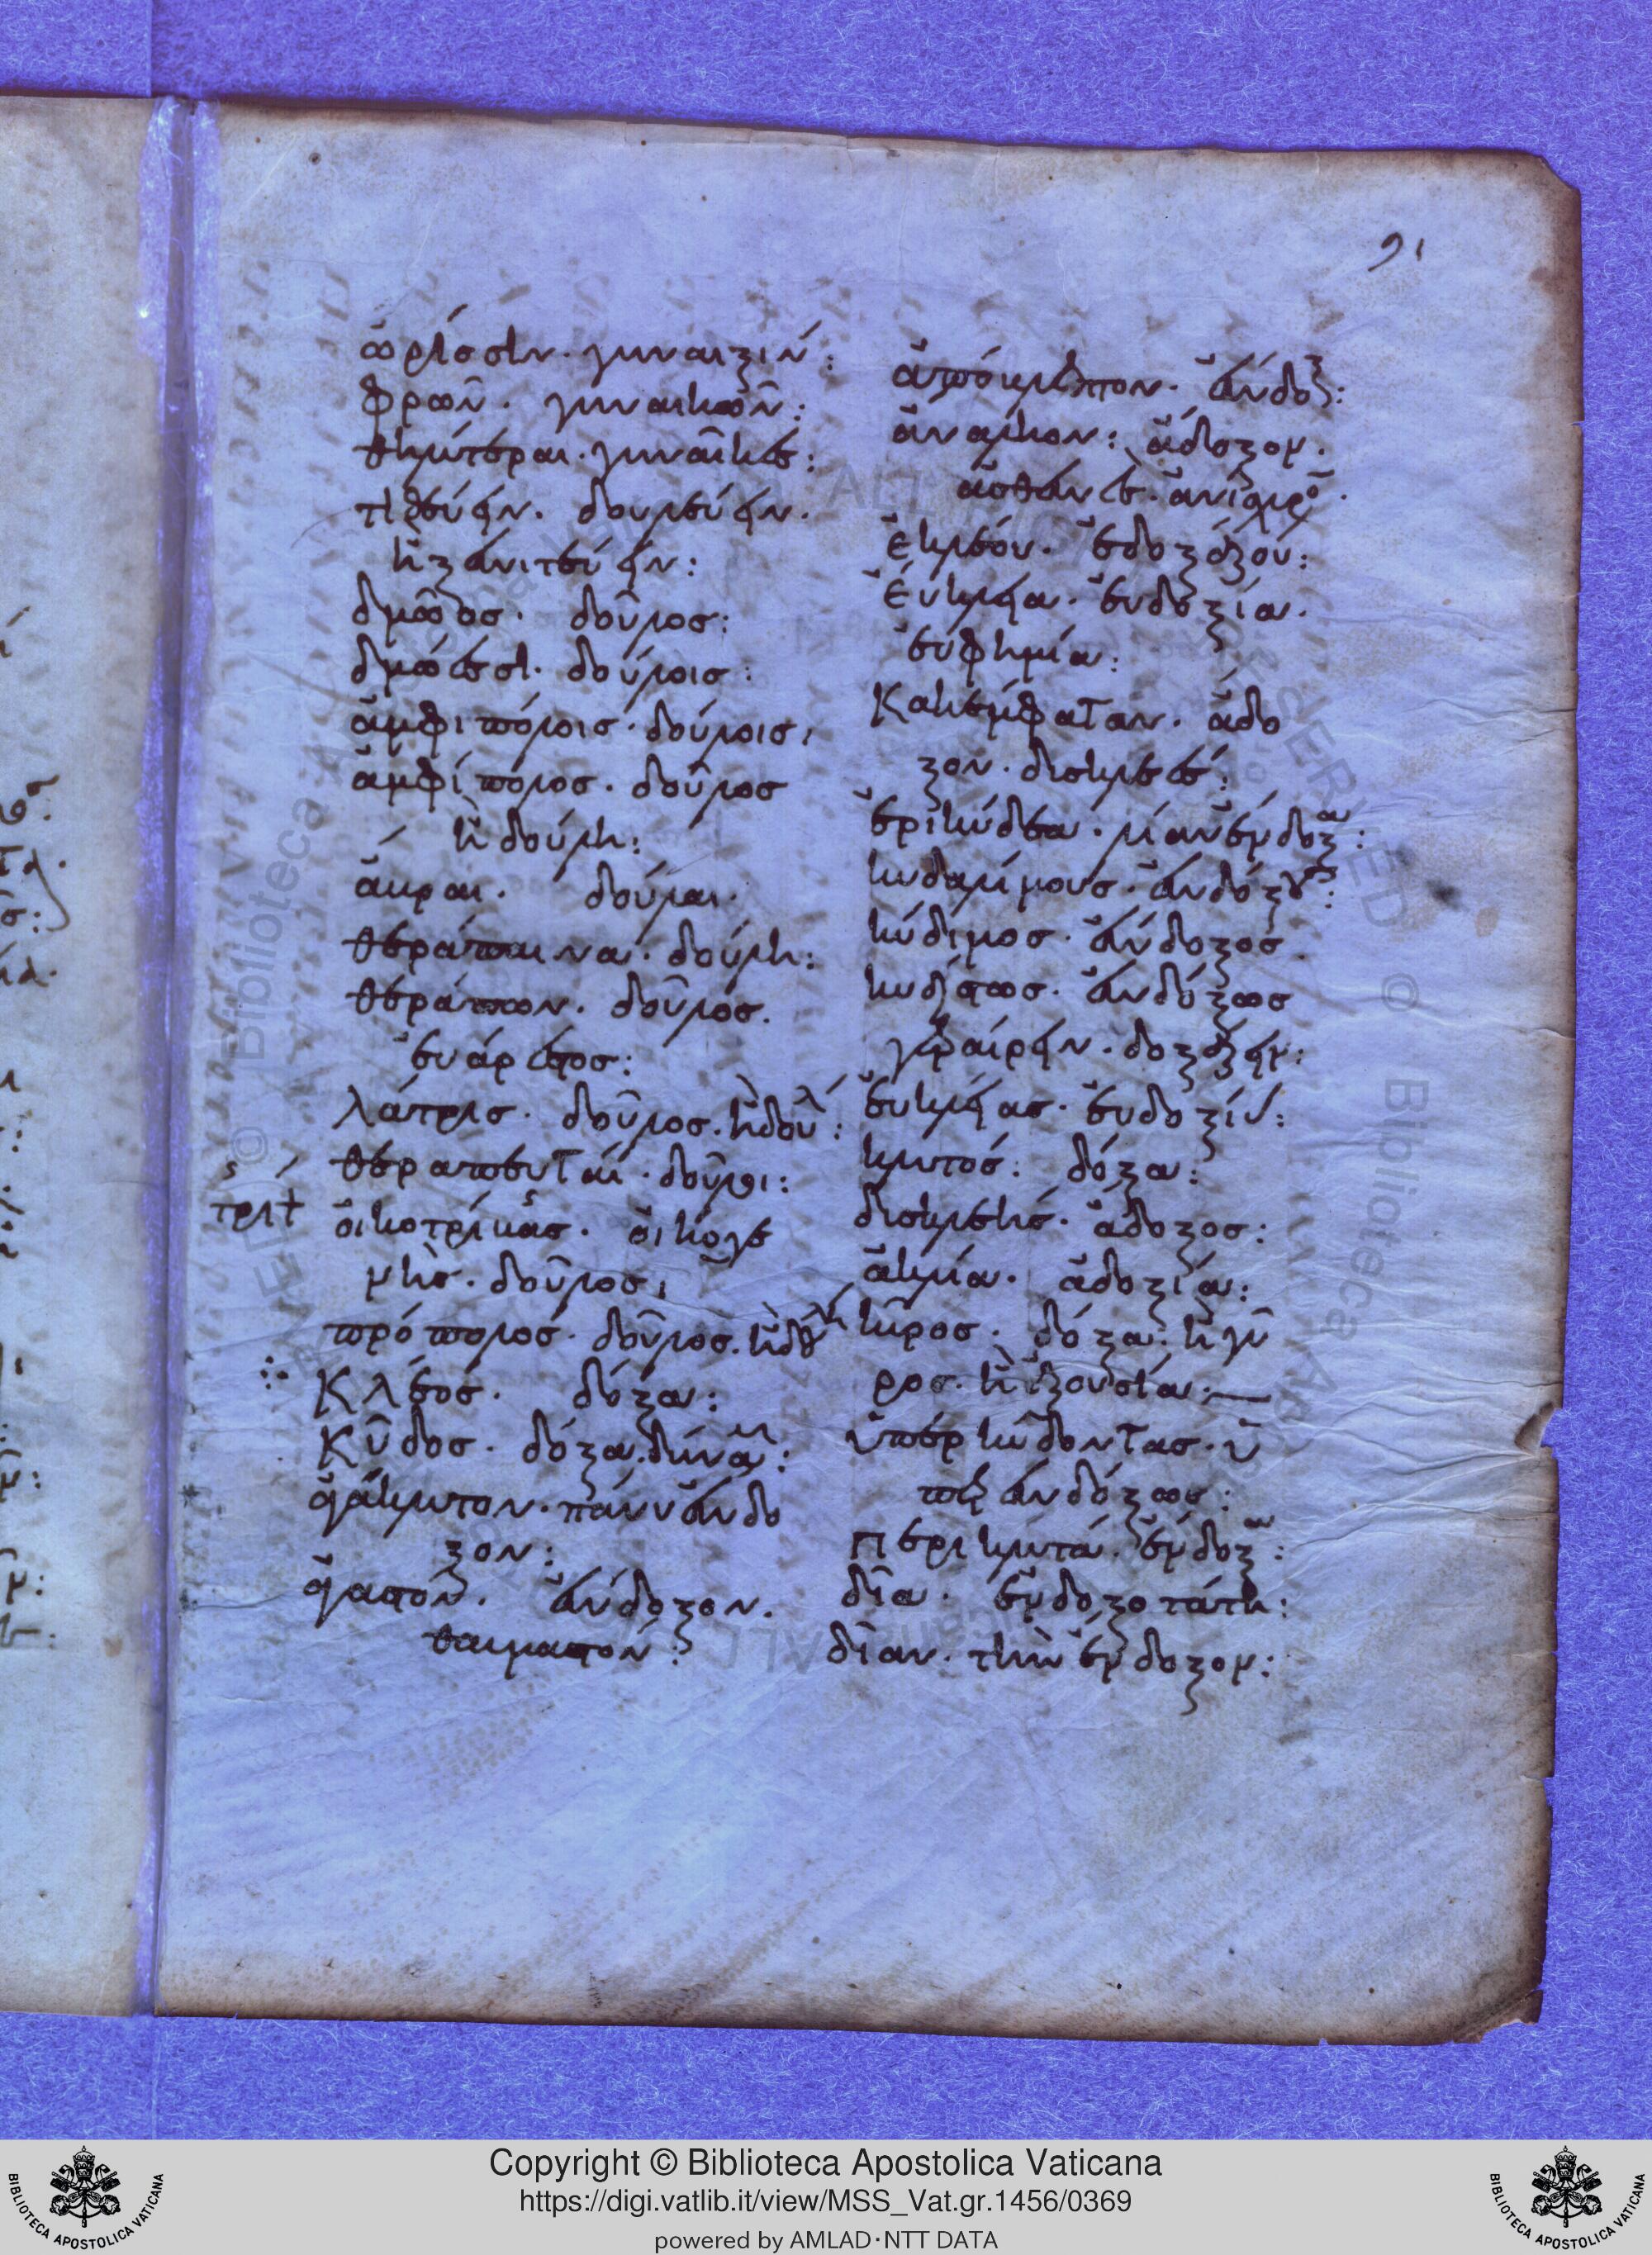 91
ὠρίεσιν. γυναιξίν:
φρῶν. γυναικῶν:
θηλύτεραι. γυναῖκες:
δουλεύειν.
ἢ ξενιτεύειν:
δμῶος. δοῦλος:
δμώεσσι. δούλοις:
ἀμφιπόλοις. δούλοις,
ἀμφίπολος. δοῦλος
ἢ δούλη:
δοῦλαι.
θεράπαινα. δούλη:
θεράπων. δοῦλος.
εὐάρεστος:
λάτρις. δοῦλος. ἢ δού λ:
θεραπευταί. δοῦλοι:
οἰκοτρίβας. οἰκογε
νὴς. δοῦλος,
πρόπολος. δοῦλος. ἢ δού λη
Κλέος. δόξα:
Κῦδος. δόξα. δύναμ:
ἀγάκλυτον. πάνυ ἔνδο
ξον:
ἀγαστόν. ἔνδοξον.
θαυμαστόν:
ἀπόκλειτον. ἔνδοξ:
ἄδοξον.
ἀσθενὲς. ἀνίσχυρο.
ἔκλεον. ἐδόξαζον:
εὔκλεια. εὐδοξία.
εὐφημία:
Κακέμφατον. ἄδο
ξον. δυσκλεές:
ἐρικύδεα. λίαν ἔνδοξα:
κυδαλίμους. ἐνδόξους:
κύδιμος. ἔνδοξος.
κυδίστως. ἐνδόξως
γεραίρειν. δοξάζειν:
εὐκλείας. εὐδοξίας:
κλυτός: δόξα:
δυσκλεής. ἄδοξος:
ἀκλεία. ἀδοξία:
κῦρος. δόξα: ἢ γῦ
ρος. ἢ ἐξουσία.
ὑπέρ κυδοντας. ὑ
περ ἐνδόξως:
περικλυτά. ἔνδοξα:
δῖα. ἐνδοξοτάτη:
δῖαν. τὴν ἔνδοξον:
Copyright © Biblioteca Apostolica Vaticana
https://digi.vatlib.it/view/MSS_Vat.gr.1456/0369
powered by AMLAD·NTT DATA
BIBLIOTECA APOSTOLICA VATICANA
BIBLIOTECA APOSTOLICA VATICANA